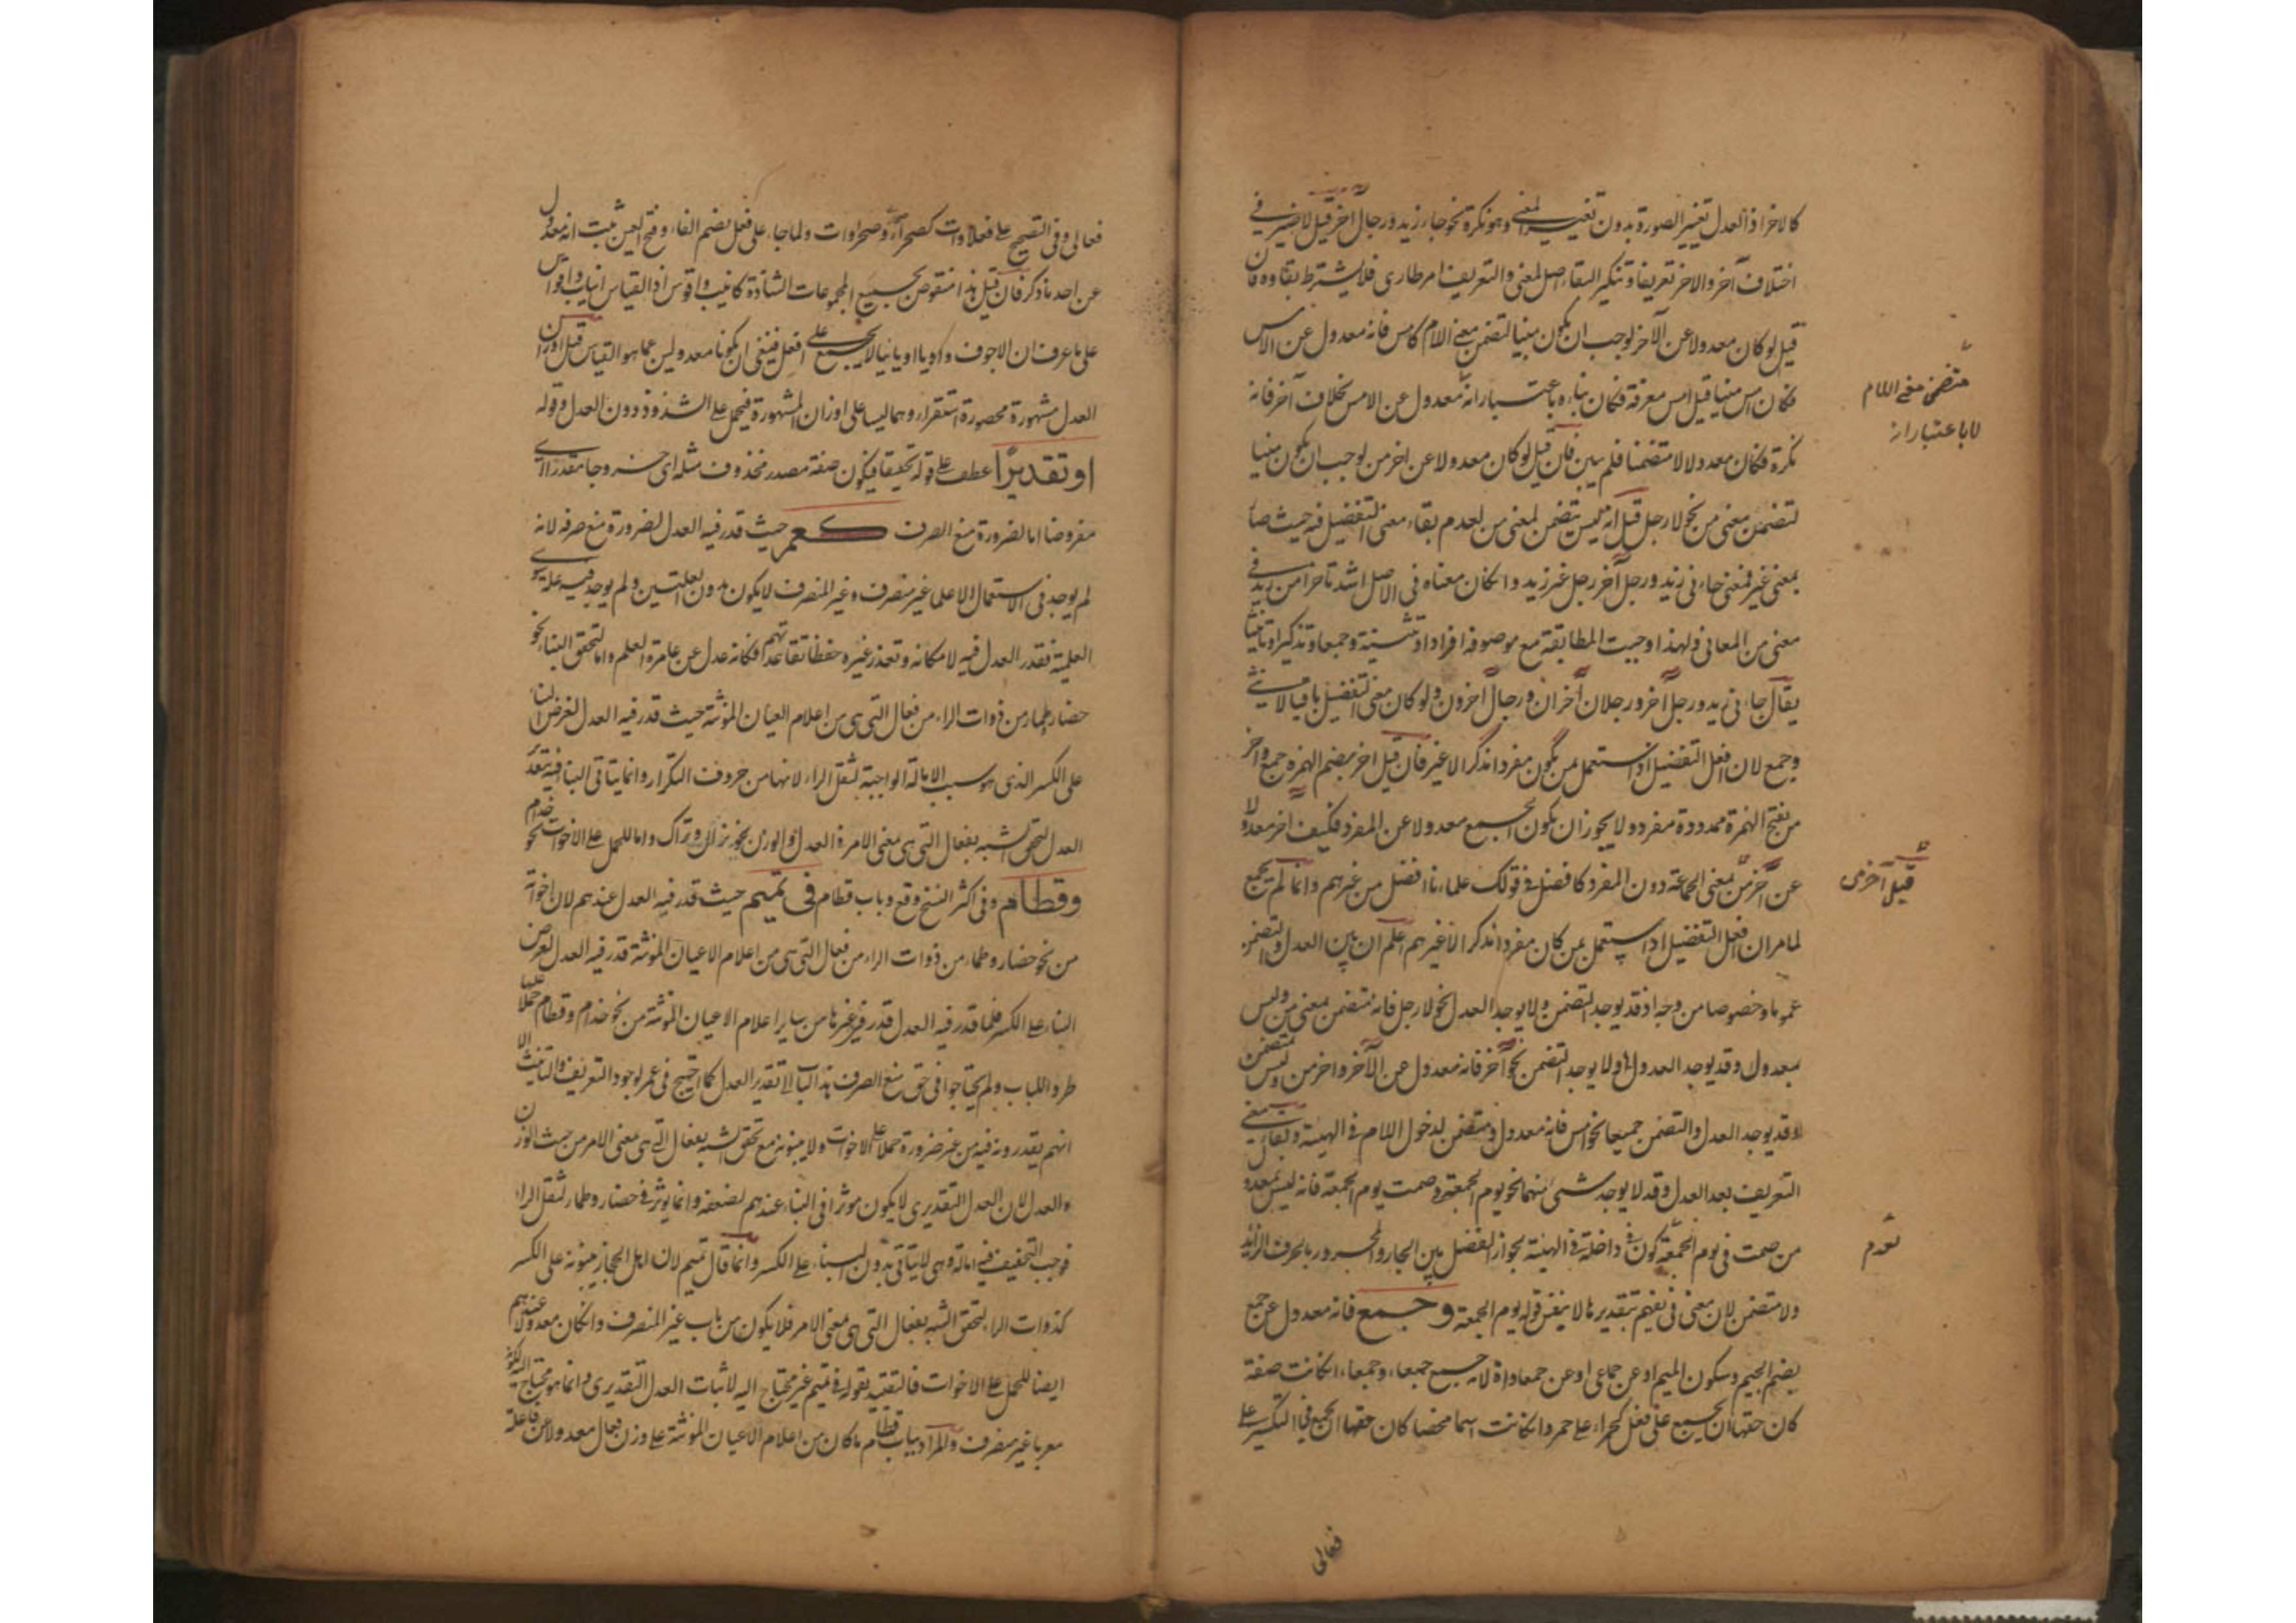 كالاخر اذ العدل تغيير الصورة بدون تغيير المعنى وهو نكرة نحو جاء زيد ورجل آخر قيل لا ضير في
اختلاف آخر والآخر تعريفا وتنكيرا لبقاء اصل المعنى والتعريف امر طارى فلا يشترط بقاوه فان
قيل لو كان معدولا عن الآخر لوجب ان يكون مبنيا لتضمن معنى اللام كامس فانه معدول عن الامس
فكان امس مبنيا قيل امس معرفة فكان بناءه باعتبار انه معدول عن الامس بخلاف آخر فانه
متضمن معنى اللام
لا باعتبار انه
نكرة فكان معدولا لا متضمنا فلم يبن فان قيل لو كان معدولا عن اخر من لوجب ان يكون مبنيا
لتضمن معنى من نحو لا رجل قيل انه ليس بتضمن لمعنى من لعدم بقاء معنى التفضيل فيه حيث صار
بمعنى غير فمعنى جاءنى زيد ورجل آخر رجل غير زيد وان كان معناه فى الاصل اشد تاخرا من زيد فى
معنى من المعانى ولهذا وجبت المطابقة مع موصوفه افرادا وتثنية وجمعا وتذكيرا وتانيثا
يقال جاءنى زيد ورجل آخر ورجلان آخران ورجال آخرون ولو كان معنى التفضيل باقيا لا يثنى
وجمع لان افعل التفضيل اذا استعمل بمن يكون مفردا مذكرا لا غير فان قيل اخر بضم الهمزة جمع واخر
من بفتح الهمزة ممدودة مفرد ولا يجوز ان يكون الجمع معدولا عن المفرد فكيف اخر معدولا
عن آخر من بمعنى الجماعة دون المفرد كافضل فى قولك علماءنا افضل من غيرهم وانما لم يجمع
قيل آخر من
لما مر ان افعل التفضيل اذا استعمل بمن كان مفردا مذكرا لا غير ثم اعلم ان بين العدل والتضمن
عموما وخصوصا من وجه اذ قد يوجد التضمن ولا يوجد العدل نحو لا رجل فانه متضمن بمعنى من وليس
بمعدول وقد يوجد العدول ولا يوجد التضمن نحو آخر فانه معدول عن الآخر او اخر من وليس بمتضمن
وقد يوجد العدل والتضمن جميعا نحو امس فانه معدول ومتضمن لدخول اللام فى الهيئة وبقاء معنى
التعريف بعد العدل وقد لا يوجد شىء منهما نحو يوم الجمعة وصمت يوم الجمعة فانه ليس بمعدول
من صمت فى يوم الجمعة كون فى داخلة فى الهيئة بجواز الفصل بين الجار والمجرور بالحرف الزائد
لعدم
ولا متضمن لان معنى فى تفهم بتقديرها لا بنفس قوله يوم الجمعة وجمع فانه معدول عن جمع
بضم الجيم وسكون الميم او عن جماعى او عن جمعاوات لانه جمع جمعاء وجمعاء ان كانت صفة
كان حقها ان يجمع على فعل كحمراء على حمر وان كانت اسما محضا كان حقها الجمع فى التكسير على
فعالى
فعالى وفى التصحيح على فعلاوات كصحراء وصحراوات ولما جاء على فعل بضم الفاء وفتح العين ثبت انه معدول
عن احد ما ذكر فان قيل هذا منقوض بجميع المجموعات الشاذة كانيب واقوس اذ القياس انياب واقواس
على ما عرف ان الاجوف واويا او يائيا لا يجمع على افعل فينبغى ان يكونا معدولين عما هو القياس قيل اوزان
العدل مشهورة محصورة استقراء وهما ليسا على اوزان المشهورة فيحمل على الشذوذ دون العدل وقوله
او تقديرا عطف على قوله تحقيقا فيكون صفة مصدر محذوف مثله اى خروجا مقدرا اى
مفروضا اما لضرورة منع الصرف كعمر حيث قدر فيه العدل لضرورة منع صرفه لانه
لم يوجد فى الاستعمال الا علما غير منصرف وغير المنصرف لا يكون بدون العلتين ولم يوجد فيه علة سوى
العلمية فقدر العدل فيه لامكانه وتعذر غيره حفظا لقاعدتهم فكانه عدل عن عامر والعلم واما لتحقق البناء نحو
حضار وطمار من ذوات الراء من فعال التى هى من اعلام الاعيان المؤنثة حيث قدر فيه العدل لغرض البناء
على الكسر الذى هو سبب الامالة الواجبة لثقل الراء لانها من حروف التكرار وانما يتاتى البناء فيه بتقدير
العدل لتحقق الشبه بفعال التى هى بمعنى الامر فى العدل والوزن نحو نزال وتراك واما للحمل على الاخوات نحو خذام
وقطام وفى اكثر النسخ وقع وباب قطام فى تميم حيث قدر فيه العدل عندهم لان اخواته
من نحو حضار وطمار من ذوات الراء من فعال التى هى من اعلام الاعيان المؤنثة قدر فيه العدل لغرض
البناء على الكسر فلما قدر فيه العدل قدر فى غيرها من سائر اعلام الاعيان المؤنثة من نحو خذام وقطام حملا عليها
طردا للباب ولم يحتاجوا فى حق منع الصرف هذا الباب الى تقدير العدل كما احتيج فى عمر لوجود التعريف والتانيث الا
انهم يقدرونه فيه من غير ضرورة حملا على الاخوات ولا يبنونه مع تحقق الشبه بفعال التى هى بمعنى الامر من حيث الوزن
والعدل لان العدل التقديرى لا يكون موثرا فى البناء عندهم لضعفه وانما يوثر فى حضار وطمار لثقل الراء
فوجب التخفيف فيه امالة وهى لا يتاتى بدون البناء على الكسر وانما قال تميم لان اهل الحجاز يبنونه على الكسر
كذوات الراء لتحقق الشبه بفعال التى هى بمعنى الامر فلا يكون من باب غير المنصرف وان كان معدولا عندهم
ايضا للحمل على الاخوات فالتقييد بقوله فى تميم غير محتاج اليه لاثبات العدل التقديرى وانما هو محتاج اليه لكونه
معربا غير منصرف والمراد بباب قطام ما كان من اعلام الاعيان المؤنثة على وزن فعال معدولا عن فاعلة